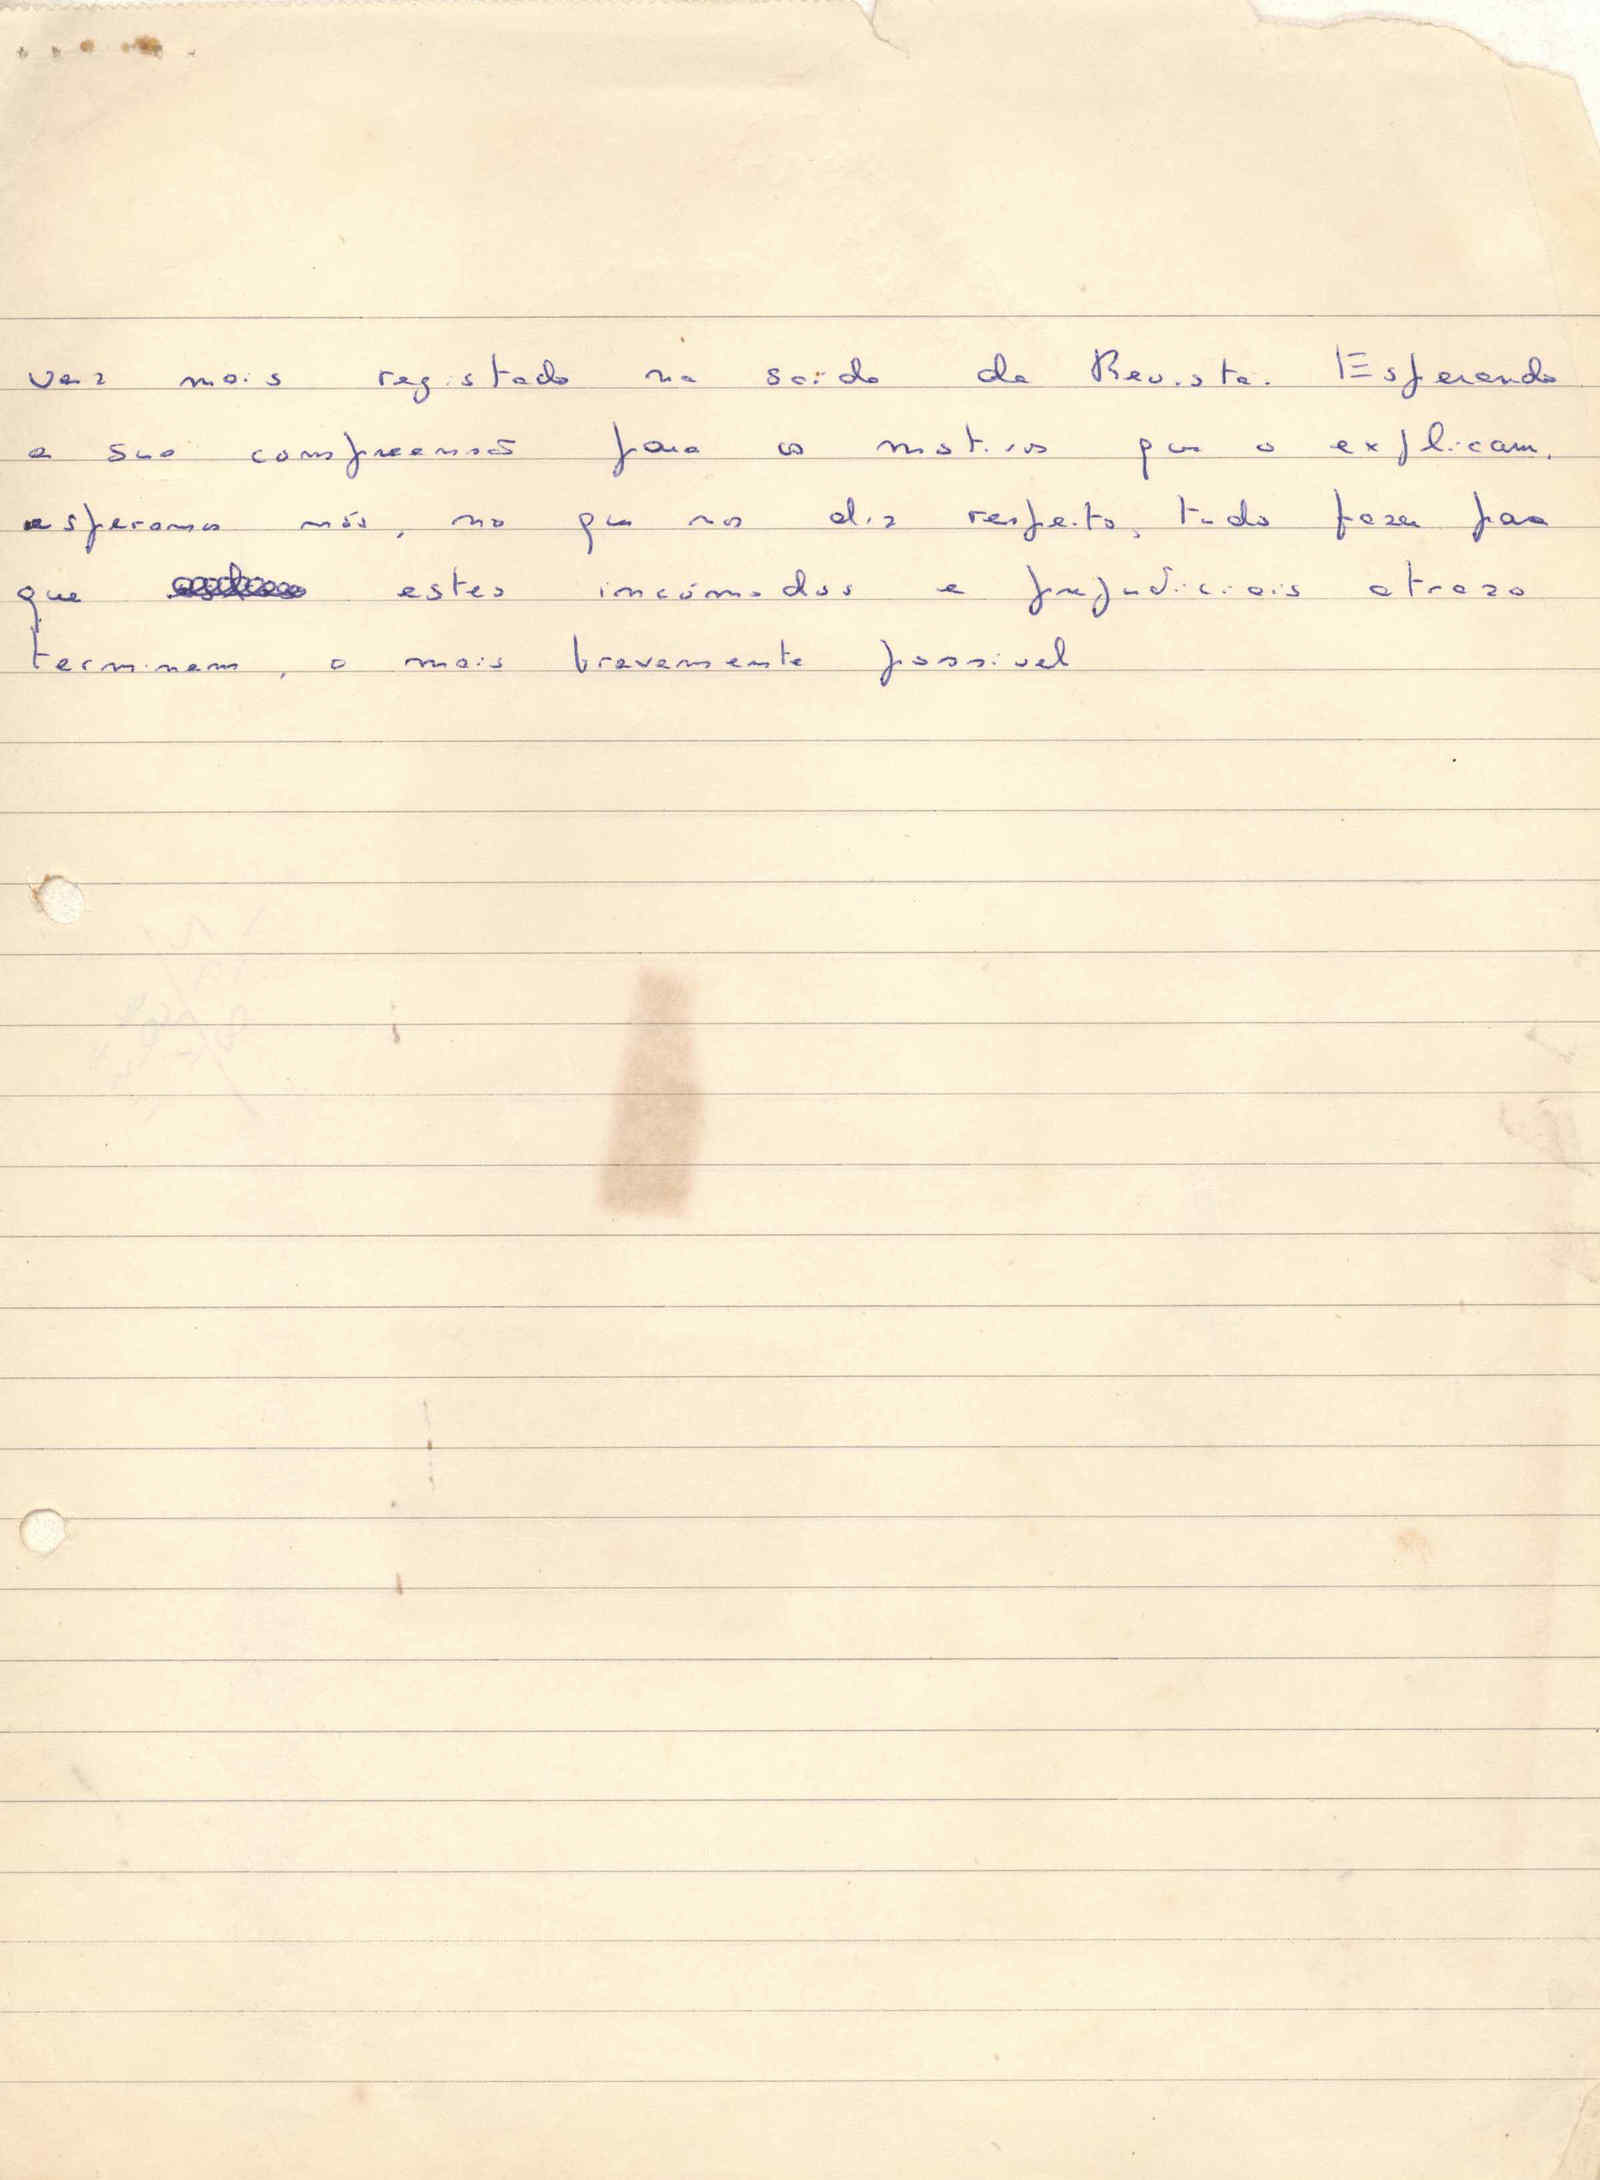 vez mais registado na saída da Revista. Esperando
a sua compreensão para os motivos que o explicam,
esperamos nós, no que nos diz respeito, tudo fazer para
que estes incómodos e prejudiciais atrazo
terminem, o mais brevemente possivel